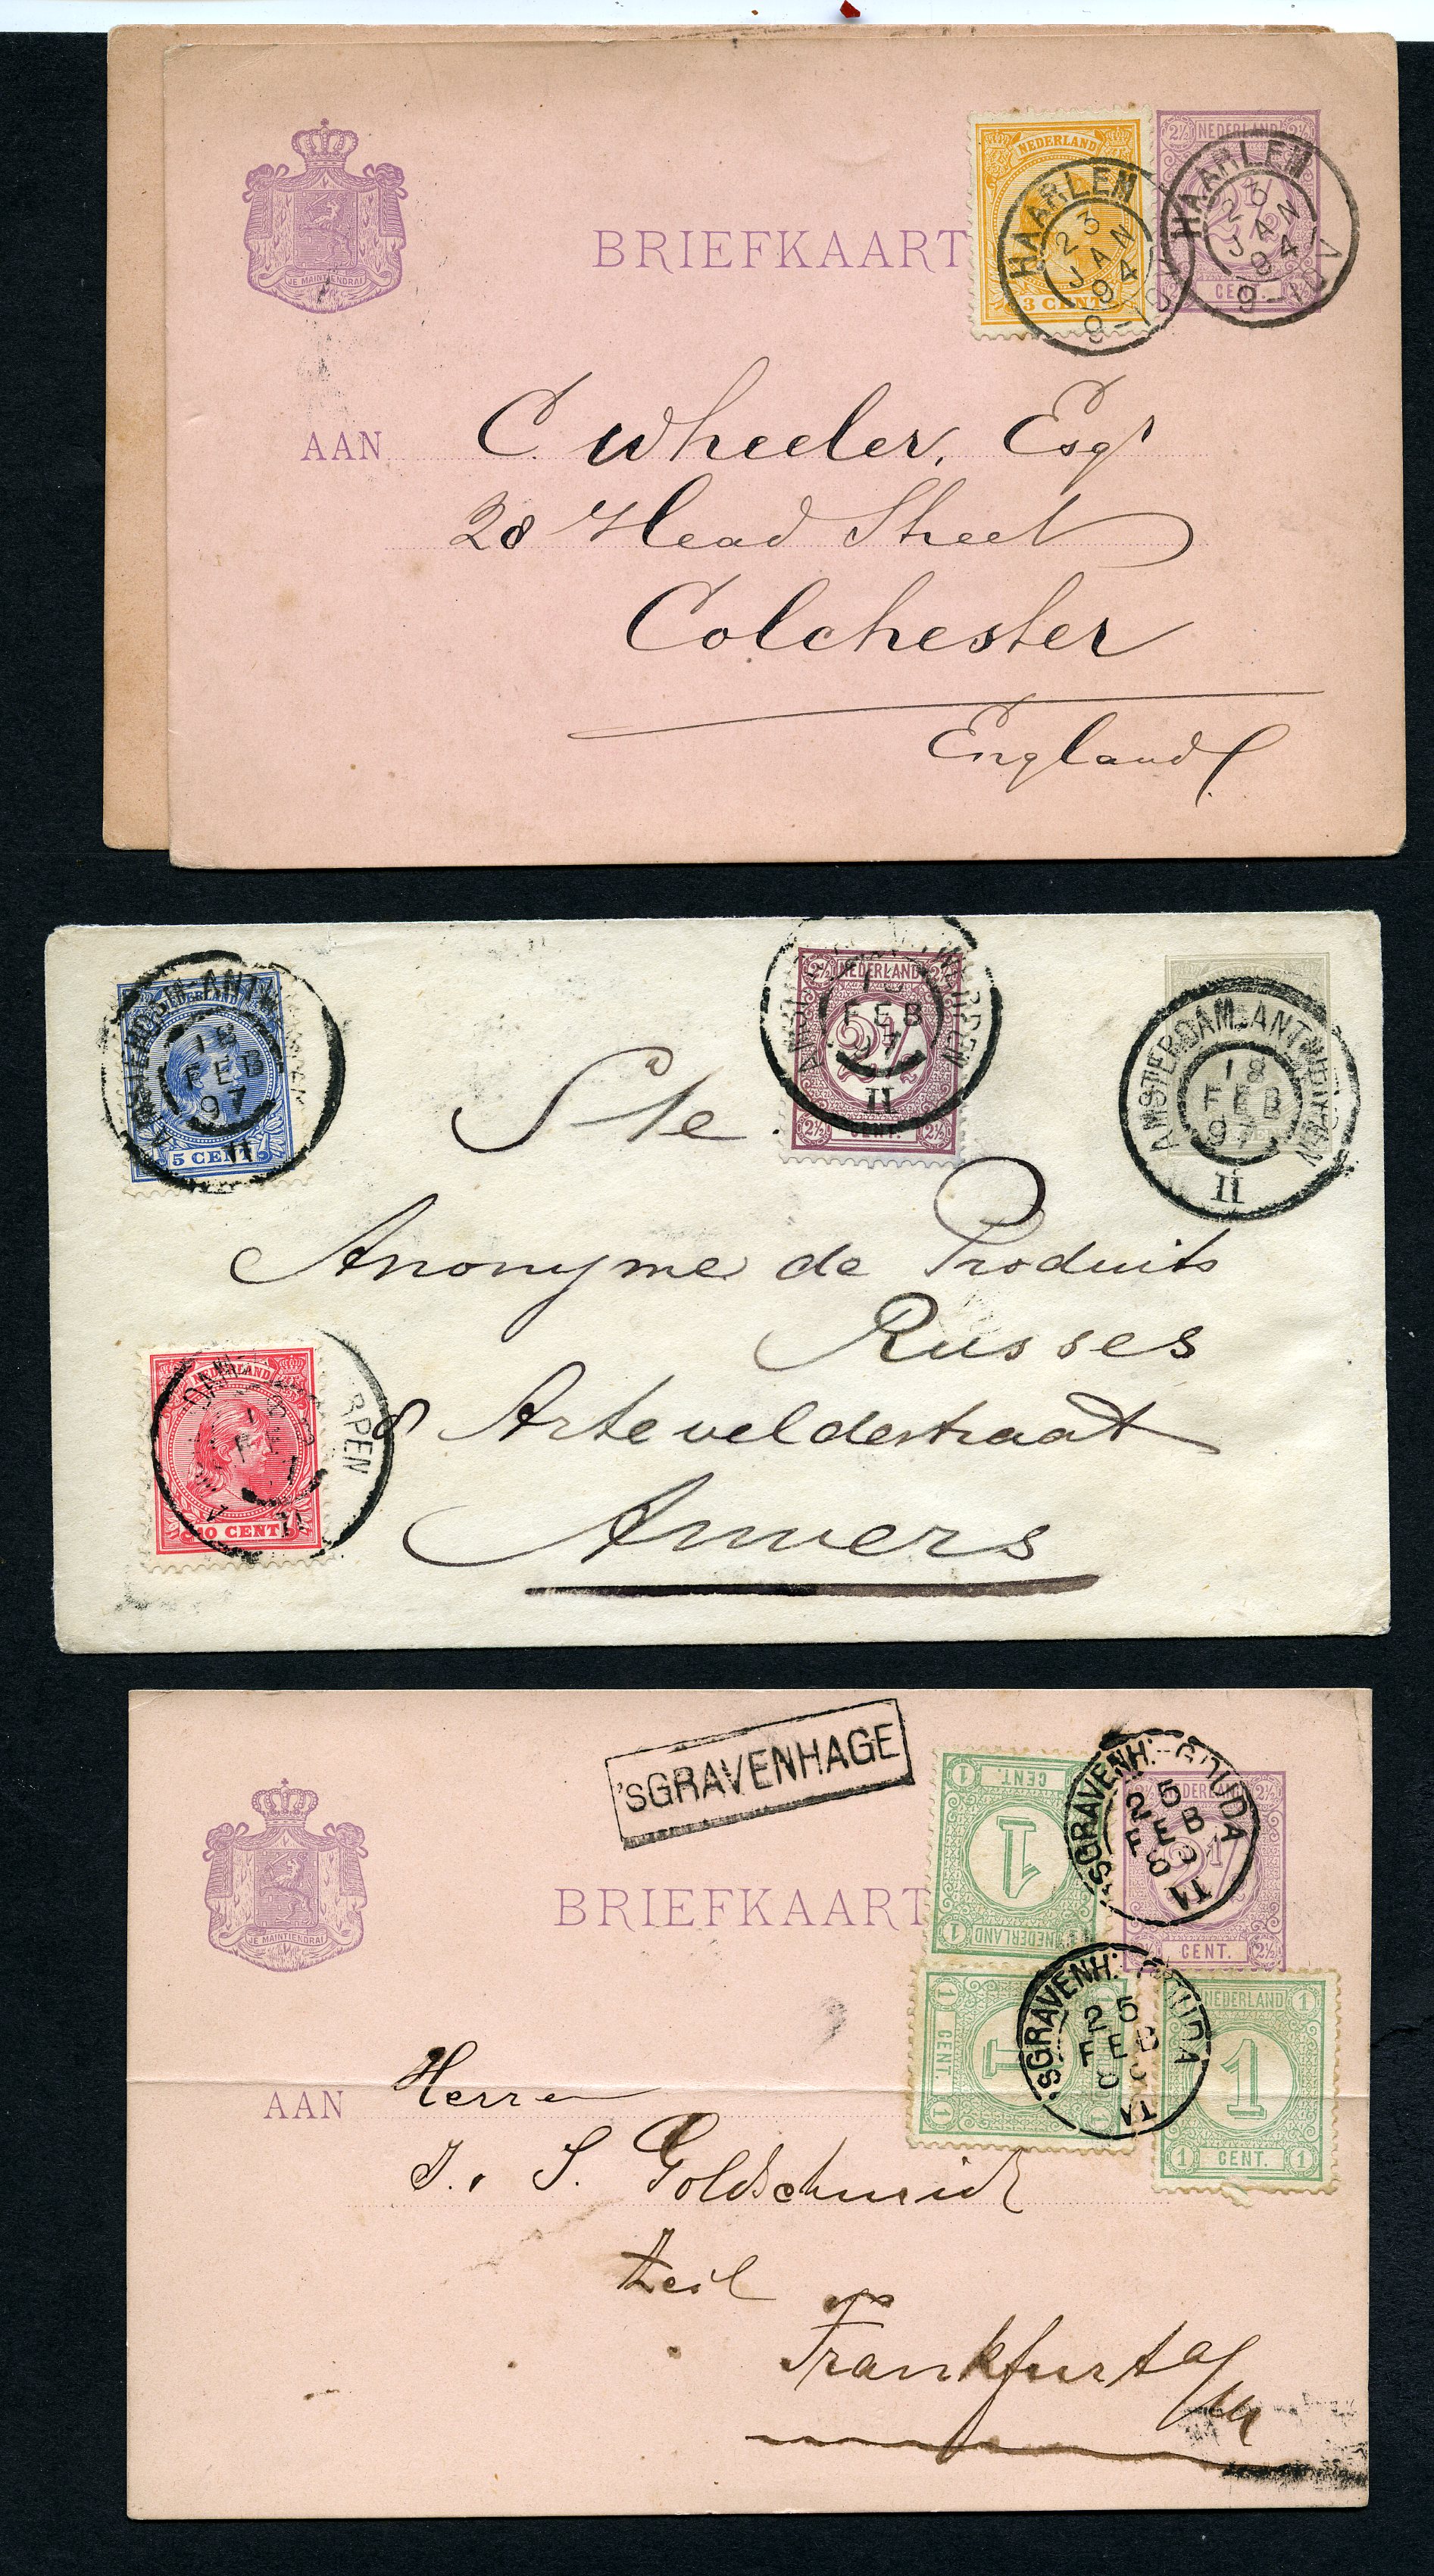 NEDERLAND
2½ NEDERLAND 2½
HAARLEM
23
JAN
94
9-10V
HAARLEM
23
JAN
94
9-10V
3 CENT
CENT.
JE MAINTIENDRAI
BRIEFKAART
AAN C. Wheeler, Esqr
28 Head Street
Colchester
England
NEDERLAND
AMSTERDAM-ANTWERPEN
18
FEB
97
II
5 CENT
2½ NEDERLAND 2½
FEB
97
II
2½ CENT. 2½
AMSTERDAM-ANTWERPEN
18
FEB
97
II
Ste
Anonyme de Produits
Russes
8 Arteveldestraat
Anvers
NEDERLAND
RPEN
10 CENT
'SGRAVENHAGE
JE MAINTIENDRAI
BRIEFKAART
1 CENT.
1
1 NEDERLAND
'SGRAVENH:-GOUDA
25
FEB
VI
NEDERLAND 2½
CENT. 2½
'SGRAVENH: GOUDA
25
FEB
VI
1 CENT. 1
1
NEDERLAND 1
1
1 CENT. 1
AAN Herrn
J. S. Goldschmidt
Zeil
Frankfurt a/M